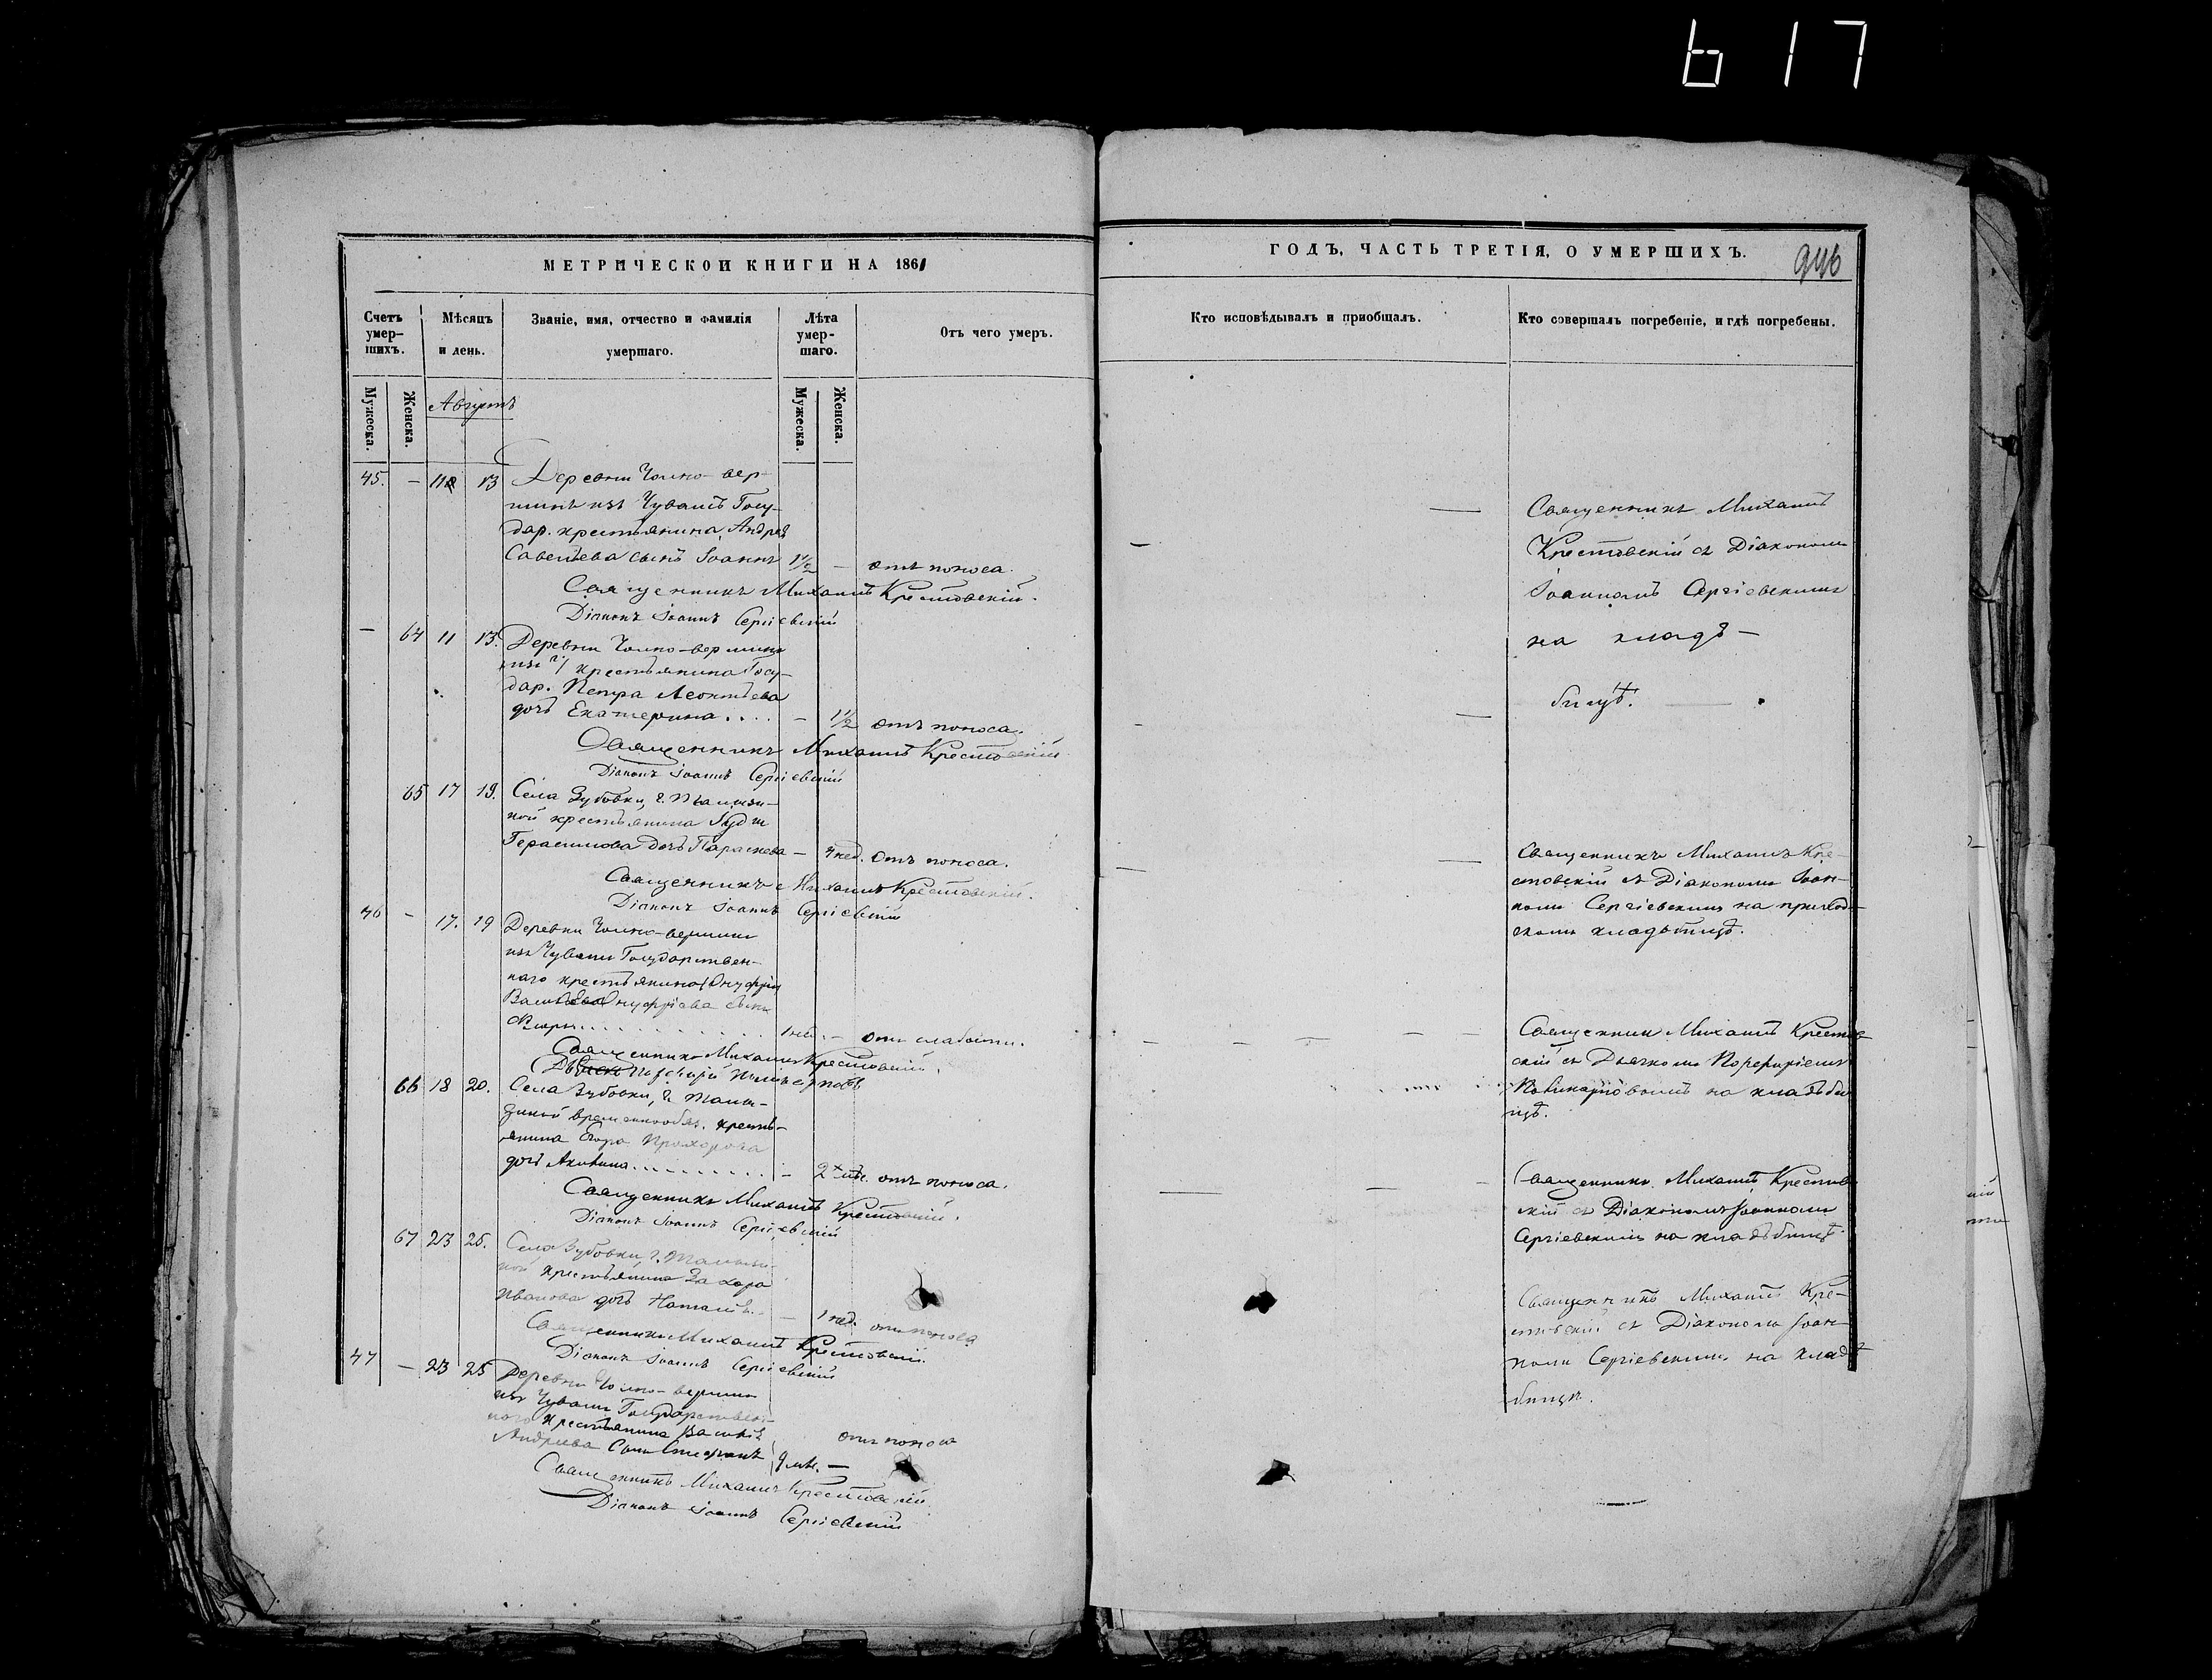 617
МЕТРИЧЕСКОЙ КНИГИ НА 1861
Счетъ умер-шихъ.
Мѣсяцъ и день.
Званіе, имя, отчество и фамилія умершаго.
Лѣта умер-шаго.
Отъ чего умеръ.
Мужеска.
Женска.
Августъ
Мужеска.
Женска.
45. — 11 13 Деревни Чолно-вер-
шинъ изъ Чувашъ Госу-
дар. крестьянина Андрея
Савельева сынъ Іоаннъ 1½ — отъ поноса.
Священникъ Михаилъ Крестовскій.
Діаконъ Іоаннъ Сергіевскій
— 64 11 13. Деревни Чолно-вершинъ
изъ крестьянина Госу-
дар. Петра Леонтьева
дочь Екатерина.... — 1½ отъ поноса.
Священникъ Михаилъ Крестовскій
Діаконъ Іоаннъ Сергіевскій
65 17 19. Села Зубовки, г.
ной крестьянина
Герасимова дочь Параскева — 4 нед. отъ поноса.
Священникъ Михаилъ Крестовскій.
Діаконъ Іоаннъ Сергіевскій
46 — 17. 19 Деревни Чолно-вершинъ
изъ Чувашъ Государствен-
наго крестьянина
Онуфріева сынъ
1 нед. — отъ слабости.
Священникъ Михаилъ Крестовскій.
66 18 20. Села Зубовки, г.
временнообяз. кресть-
янина Егора Прохорова
дочь Акилина.......... — 2 мѣс. отъ поноса.
Священникъ Михаилъ Крестовскій.
Діаконъ Іоаннъ Сергіевскій
67 23 25. Села Зубовки, г.
ной крестьянина Захара
Иванова дочь Наталія. — 1 нед. отъ поноса
Священникъ Михаилъ Крестовскій.
Діаконъ Іоаннъ Сергіевскій
47 — 23 25 Деревни Чолно-вершинъ
изъ Чувашъ Государствен-
наго крестьянина Василія
Андреева сынъ Стефанъ 9 мѣс. — отъ поноса
Священникъ Михаилъ Крестовскій.
Діаконъ Іоаннъ Сергіевскій
ГОДЪ, ЧАСТЬ ТРЕТІЯ, О УМЕРШИХЪ.
946
Кто исповѣдывалъ и пріобщалъ.
Кто совершалъ погребеніе, и гдѣ погребены.
Священникъ Михаилъ
Крестовскій съ Діакономъ
Іоанномъ Сергіевскимъ
на кладѣ-
бищѣ.
Священникъ Михаилъ Кре-
стовскій съ Діакономъ Іоан-
номъ Сергіевскимъ на приход-
скомъ кладбищѣ.
Священник Михаилъ Крестов-
скій съ Дьячкомъ Порфиріемъ
на кладѣби
щѣ.
Священникъ Михаилъ Крестов-
скій съ Діакономъ Іоанномъ
Сергіевскимъ на кладѣбищѣ.
Священникъ Михаилъ Кре-
стовскій съ Діакономъ Іоан-
номъ Сергіевскимъ на кладѣ
бищѣ.